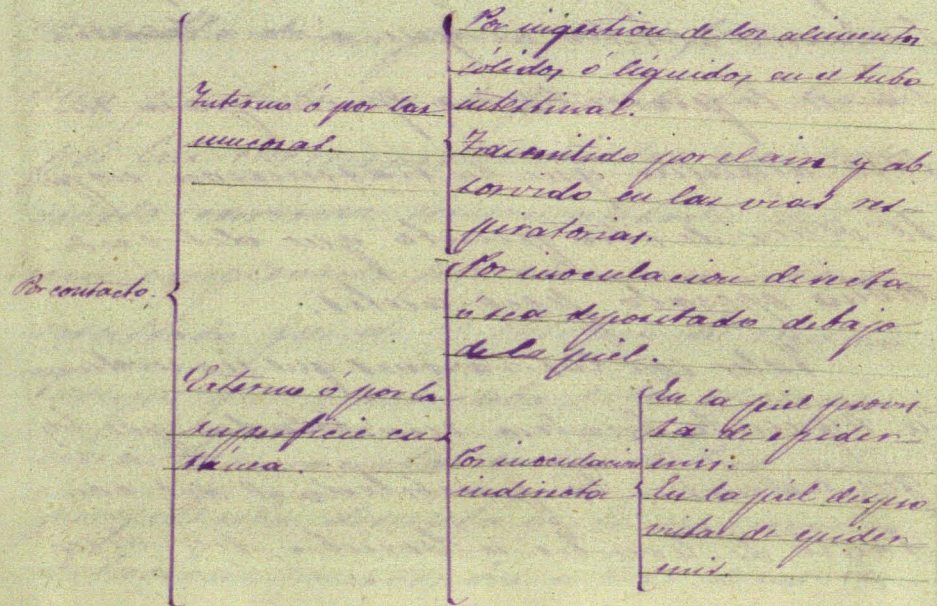 Por contacto.
Interno ó por las
mucosas.
Por ingestion de los alimentos
sólidos ó líquidos en el tubo
intestinal.
Trasmitido por el aire y ab
sorvido en las vias res
piratorias.
Externo ó por la
superficie cu
tánea.
Por inoculacion directa
ó sea depositado debajo
de la piel.
Por inoculacion
indirecta
En la piel provis
ta de epider-
mis.
En la piel despro
vista de epider
mis.